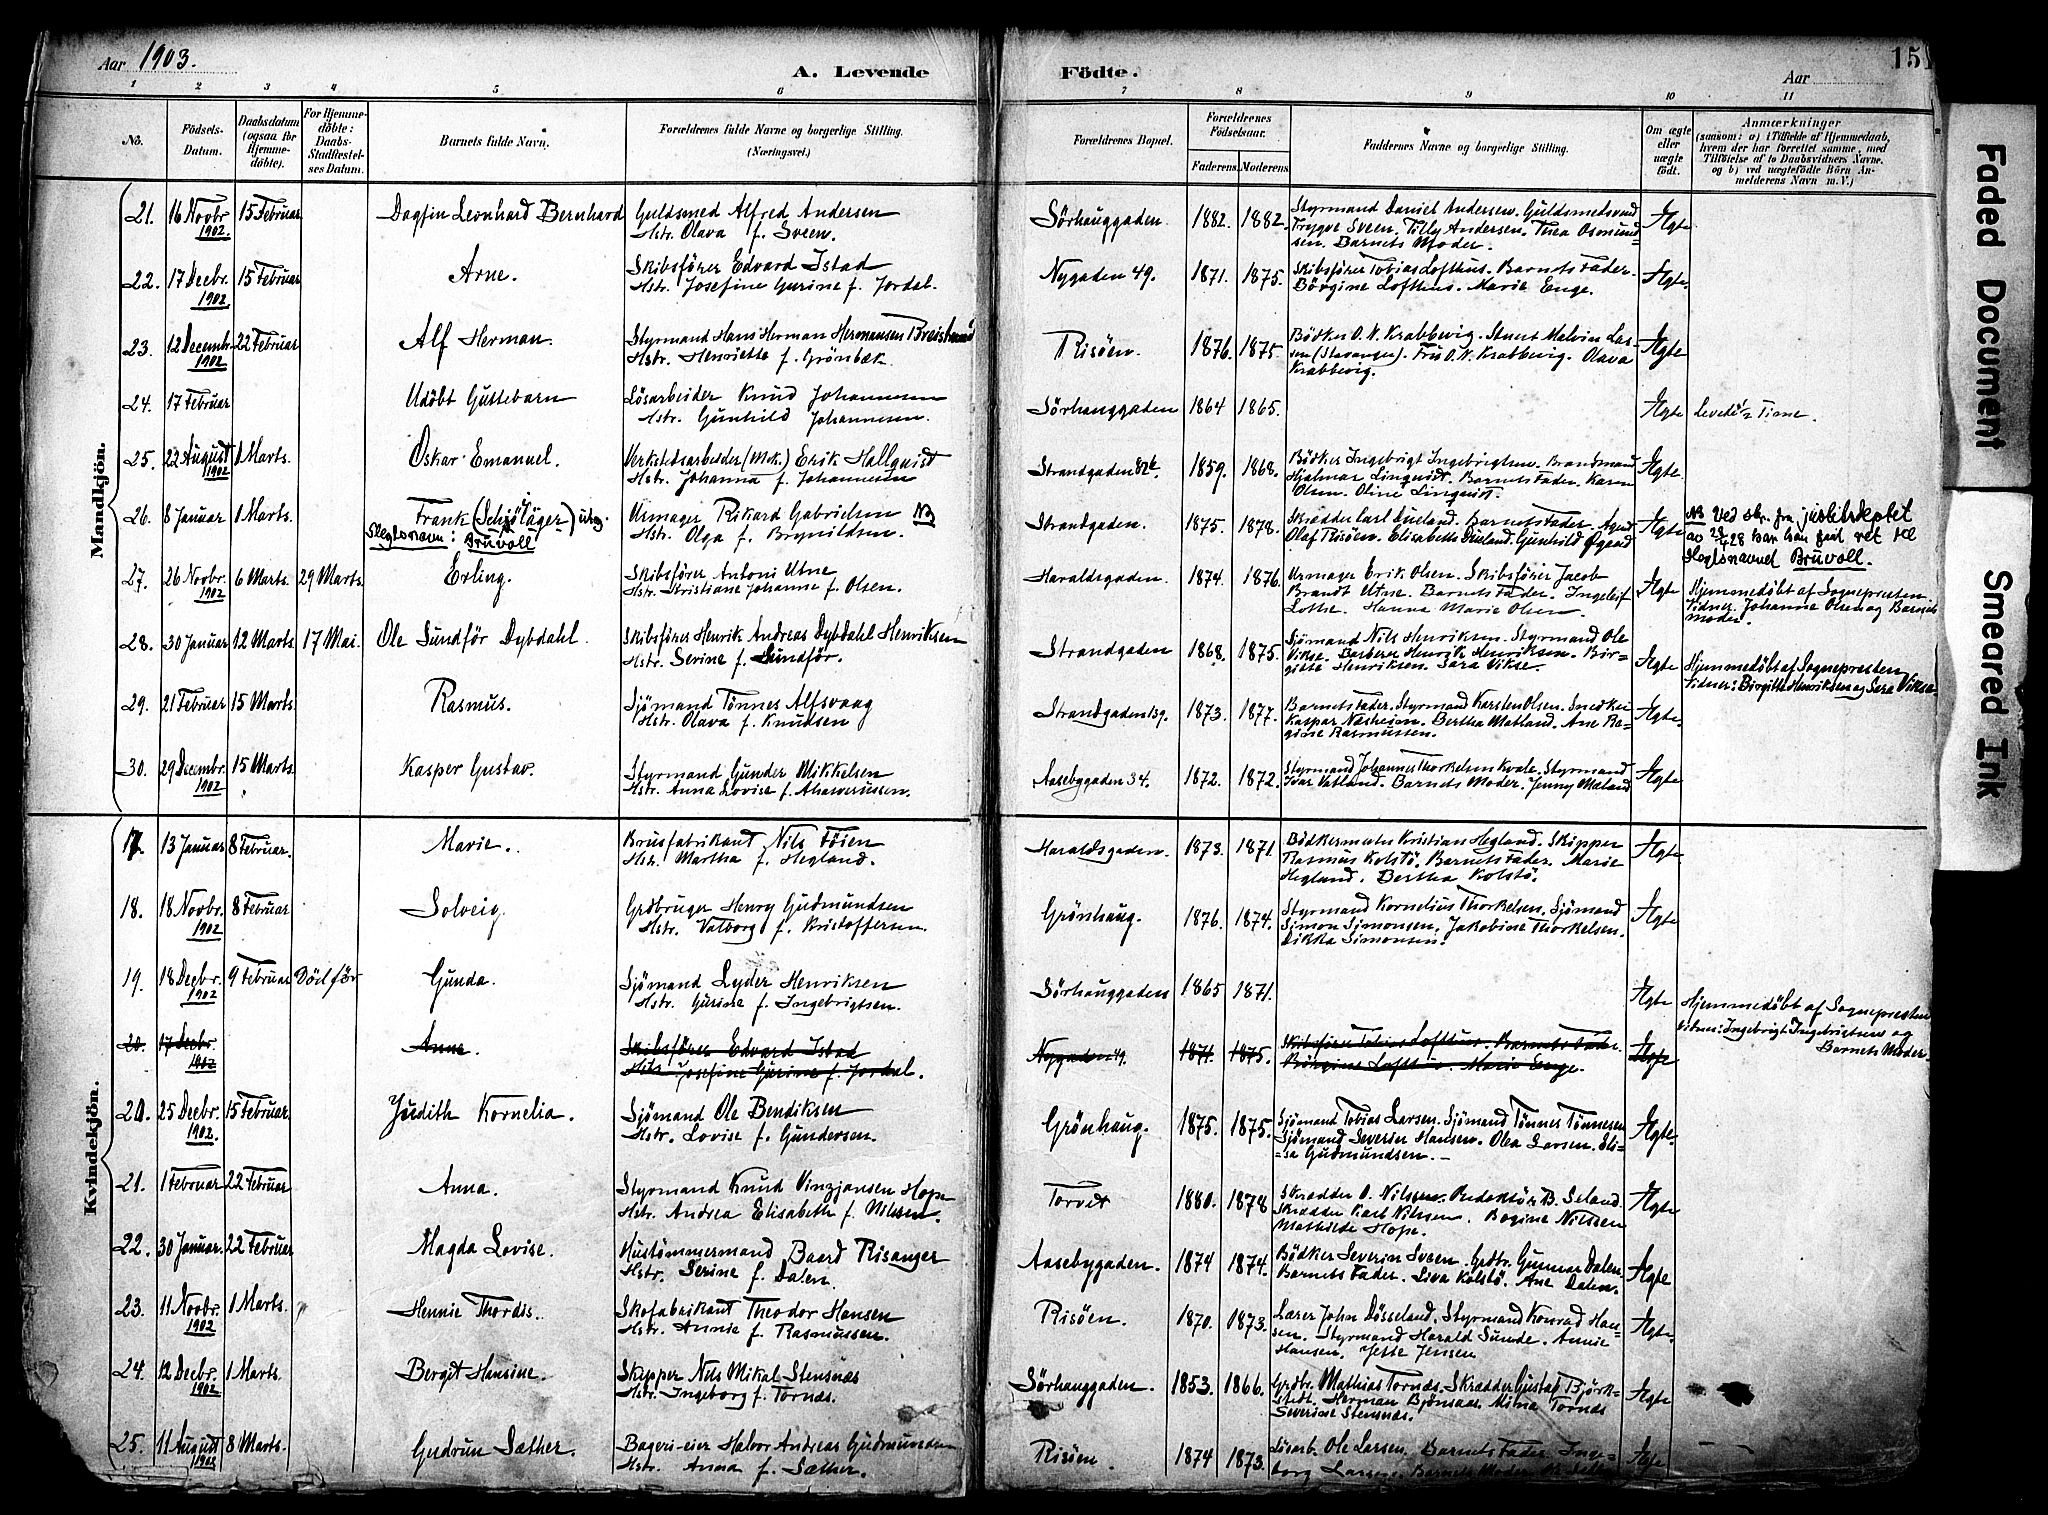 Aar 1903.
A. Levende Födte.
Aar
15
1 2 3 4 5 6 7 8 9 10 11
No.
Födsels-Datum.
Daabsdatum (ogsaa for Hjemmedöbte).
For Hjemmedöbte: Daabs-Stadfestelses Datum.
Barnets fulde Navn.
Forældrenes fulde Navne og borgerlige Stilling.
(Næringsvei.)
Forældrenes Bopæl.
Forældrenes Födselsaar.
Faderens. Moderens.
Faddernes Navne og borgerlige Stilling.
Om ægte eller uægte födt.
Anmærkninger
(saasom: a) i Tilfælde af Hjemmedaab, hvem der har forrettet samme, med Tilföielse af to Daabsvidners Navne. og b) ved uægtefödte Börn Anmelderens Navn m. V.)
Mandkjön.
21. 16 Novbr. 1902. 15 Februar Dagfin Leonhard Bernhard Guldsmed Alfred Andersen Hstr. Olava f. Sveen. Sörhauggaden. 1882. 1882. Styrmand Daniel Andersen. Guldsmedsvend Trygve Sveen. Tilly Andersen. Thea Osmundsen. Barnets Moder. Ægte
22. 17 Decbr. 1902 15 Februar Arne. Skibsförer Edvard Istad Hstr. Josefine Gurine f. Jordal. Nygaden 49. 1871. 1875. Skibsförer Tobias Lofthus. Barnets Fader. Börgine Lofthus. Marie Enge. Ægte.
23. 12 Decemb. 1902 22 Februar Alf Herman. Styrmand Hans Herman Hermansen Hstr. Henriette f. Grönbæk. Risöen. 1876. 1875. Bödker O. N. Krabbevig. Stuert Malvin Larsen (Stavanger). Fru O. N. Krabbevig. Olava Krabbevig. Ægte
24. 17 Februar Udöbt Guttebarn Lösarbeider Knud Johannesen Hstr. Gunhild Johannesen. Sörhauggaden 1864 1865. Ægte Levede ½ Time.
25. 22 August 1902 1 Marts. Oskar Emanuel. Verkstedsarbeider (Mek.) Erik Hallquist Hstr. Johanna f. Johannesen Strandgaden 1859. 1868. Bödker Ingebrigt Ingebrigtsen. Brandmand Hjalmar Linquist. Barnets Fader. Karen Olsen. Oline Linquist. Ægte.
26. 8 Januar 1 Marts. Frank (Schjöläger) utg. Slegtsnavn: Bruvoll Urmager Rikard Gabrielsen NB Hstr. Olga f. Brynildsen. Strandgaden. 1875. 1878. Skrædder Carl Dueland. Barnets Fader. Olaf Risöen. Elisabeth Dueland. Gunhild Ægte NB Ved skr. fra justitsdeptet av 28 har han faat ret til Slegtsnavnet Bruvoll.
27. 26 Novbr. 1902 6 Marts. 29 Marts. Erling. Skibsförer Antoni Utne Hstr. Kristiane Johanne f. Olsen. Haraldsgaden. 1874. 1876. Urmager Erik Olsen. Skibsförer Jacob Brandt Utne. Barnets Fader. Ingeleif Lothe. Hanna Marie Olsen. Ægte Hjemmedöbt af Sognepresten. Vidner. Johanne Olsen og Barnets Moder.
28. 30 Januar 12 Marts. 17 Mai. Ole Sundför Dybdahl. Skibsförer Henrik Andreas Dybdahl Henriksen Hstr. Serine f. Sundför. Strandgaden 1868. 1875. Sjömand Nils Henriksen. Styrmand Ole Vikse. Barberer Henrik Henriksen. Birgitte Henriksen. Sara Vikse. Ægte Hjemmedöbt af Sognepresten Vidner: Birgitte Henriksen og Sara Vikse
29. 21 Februar 15 Marts. Rasmus. Sjömand Tönnes Alfsvaag Hstr. Olava f. Knudsen Strandgaden 139. 1873. 1877. Barnets Fader. Styrmand Karsten Olsen. Snedker Kaspar Næsheim. Bertha Matland. Ane Regine Rasmussen. Ægte.
30. 29 Decembr. 1902 15 Marts. Kasper Gustav. Styrmand Gunder Mikkelsen Hstr. Anna Lovise f. Ahasveriussen. Aasebygaden 34. 1872. 1872. Styrmand Johannes Thorkelsen Kvale. Styrmand Ivar Vatland. Barnets Moder. Jenny Matland Ægte.
Kvindekjön.
17. 13 Januar 8 Februar. Marie. Brusfabrikant Nils Föien Hstr. Martha f. Hegland. Haraldsgaden. 1873. 1871. Bödkermester Kristian Hegland. Skipper Rasmus Kolstö. Barnets Fader. Marie Hegland. Bertha Kolstö. Ægte
18. 18 Novbr. 1902 8 Februar Solveig. Grdbruger Henry Gudmundsen Hstr. Valborg f. Kristoffersen. Grönhaug. 1876. 1874. Styrmand Kornelius Thorkelsen. Sjömand Simon Simonsen. Jakobine Thorkelsen. Dikka Simonsen. Ægte
19. 18 Decbr. 1902 9 Februar Död för Gunda. Sjömand Lyder Henriksen Hstr. Gurine f. Ingebrigtsen. Sörhauggaden 1865 1871. Ægte Hjemmedöbt af Sognepresten Vidner: Ingebrigt Ingebrigtsen og Barnets Moder.
20. 17 Decbr. 1902 Anne. Skibsförer Edvard Istad Hstr. Josefine Gurine f. Jordal. Nygaden 49. 1871. 1875. Skibsförer Tobias Lofthus. Barnets Fader. Börgine Lofthus. Marie Enge. Ægte
20. 25 Decbr. 1902. 15 Februar Judith Kornelia. Sjömand Ole Bendiksen Hstr. Lovise f. Gundersen. Grönhaug. 1875. 1875. Sjömand Tobias Larsen. Sjömand Tönnes Tönnesen Sjömand Severin Hansen. Olea Larsen. Elisa Gudmundsen. Ægte.
21. 1 Februar 22 Februar Anna. Styrmand Knud Vinzjansen Hope Hstr. Andrea Elisabeth f. Nilssen. Torvet 1880. 1878 Skrædder O. Nilssen. Redaktör B. Seland. Skrædder Karl Nilssen. Bogine Nilssen Mathilde Hope. Ægte
22. 30 Januar. 22 Februar Magda Lovise. Hustömmermand Baard Risanger Hstr. Serine f. Dalen. Aasebygaden. 1874 1874. Bödker Severin Sveen. Grdbr. Gunnar Dalen. Barnets Fader. Liva Kolstö. Ane Dalen. Ægte
23. 11 Novbr. 1902 1 Marts. Hennie Thordis. Skofabrikant Theodor Hansen Hstr. Annie f. Rasmussen. Risöen. 1870. 1873. Lærer John Dösseland. Styrmand Konrad Hansen. Styrmand Harald Sunde. Annie Hansen. Jette Jensen Ægte.
24. 12 Decbr. 1902 1 Marts. Bergit Hansine. Skipper Nils Mikal Stensnæs Hstr. Ingeborg f. Tornæs. Sörhauggaden. 1853. 1866. Grdbr. Mathias Tornæs. Skrædder Gustaf Björkstedt. Herman Bjönsaas. Mina Tornæs Severine Stensnæs. Ægte
25. 11 August 1902 8 Marts. Gudrun Sæther. Bageri-eier Halvor Andreas Gudmundsen Hstr. Anna f. Sæther. Risöen. 1874 1873. Lösarb. Ole Larsen. Barnets Fader. Ingeborg Larsen. Barnets Moder. Ægte
Faded Document
Smeared Ink